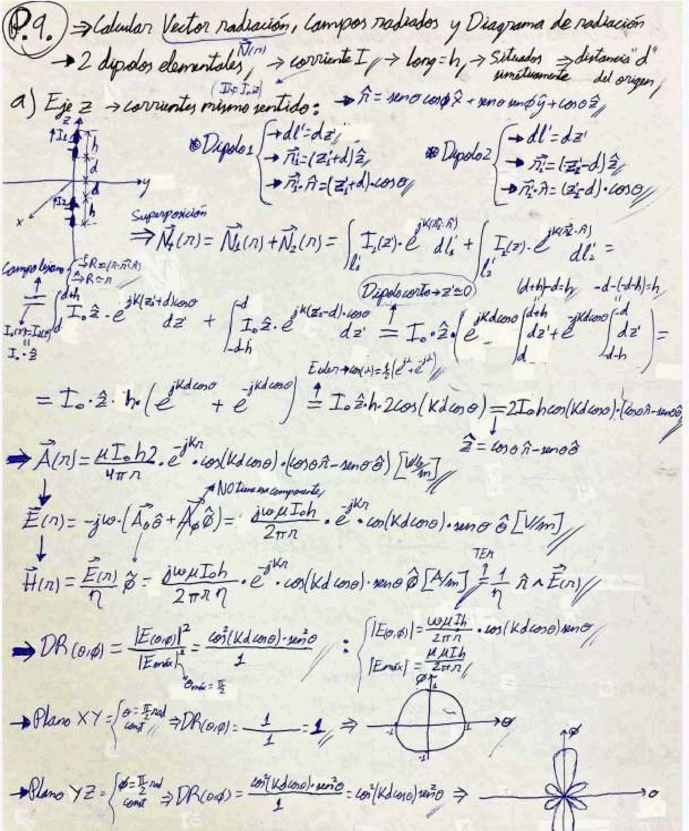 P.9. ⇒ Calcular Vector radiación, campos radiados y Diagrama de radiación
N⃗(r)
→ 2 dipolos elementales, → corriente I, → long=h, → Situados simétricamente ⇒ distancia "d" del origen
(I⃗₁=I₀ẑ)
a) Eje z → corrientes mismo sentido: → r̂ = senθcosϕx̂ + senθsenϕŷ + cosθẑ
z ↑I₁ h d y d ↑I₂ h x
* Dipolo1 { → dl'=dz'
→ r⃗₁'=(z₁'+d)ẑ
→ r⃗₁'·r̂=(z₁'+d)·cosθ
* Dipolo2 { → dl'=dz'
→ r⃗₂'=(z'-d)ẑ
→ r⃗₂'·r̂=(z₂'-d)·cosθ
Superposición
⇒ N⃗(r) = N⃗₁(r)+N⃗₂(r) = ∫l₁' I₁(z)·e^{jK(r⃗₁'·r̂)} dl₁' + ∫l₂' I₂(z)·e^{jK(r⃗₂'·r̂)} dl₂' =
Campo lejano { R≈(r-r⃗'·r̂)
R≈r
Dipolo corto → z'≈0
(d+h)-d=h -d-(-d-h)=h
= ∫_d^{d+h} I₀ẑ·e^{jK(z₁'+d)cosθ} dz' + ∫_{-d-h}^{-d} I₀ẑ·e^{jK(z₂'-d)·cosθ} dz' = I₀·ẑ·(e^{jKdcosθ} ∫_d^{d+h} dz' + e^{-jKdcosθ} ∫_{-d-h}^{-d} dz') =
I₁(z)=I₂(z)
I₀·ẑ
Euler → cos(x)=½(e^{jx}+e^{-jx})
= I₀·ẑ·h·(e^{jKdcosθ} + e^{-jKdcosθ}) = I₀ẑ·h·2cos(Kdcosθ) = 2I₀hcos(Kdcosθ)·(cosθr̂-senθθ̂)
ẑ=cosθr̂-senθθ̂
⇒ A⃗(r) = μI₀h2/4πr · e^{-jKr}·cos(Kdcosθ)·(cosθr̂-senθθ̂) [Wb/m]
NO tiene componente
E⃗(r) = -jω·(A⃗θθ̂+A⃗ϕϕ̂) = jωμI₀h/2πr · e^{-jKr}·cos(Kdcosθ)·senθ θ̂ [V/m]
TEM
H⃗(r) = E⃗(r)/η ϕ̂ = jωμI₀h/2πrη · e^{-jKr}·cos(Kdcosθ)·senθ ϕ̂ [A/m] = 1/η r̂∧E⃗(r)
⇒ DR(θ,ϕ) = |E(θ,ϕ)|²/|Emáx|² = cos²(Kdcosθ)·sen²θ/1 : { |E(θ,ϕ)|=ωμIh/2πr · cos(Kdcosθ)senθ
θmáx=π/2
|Emáx|=μμIh/2πr
→ Plano XY = { θ=π/2 rad
cont ⇒ DR(θ,ϕ) = 1/1 = 1 ⇒ ϕ 1 -1 1 -1 θ
→ Plano YZ = { ϕ=π/2 rad
cont ⇒ DR(θϕ) = cos²(Kdcosθ)·sen²θ/1 = cos²(Kdcosθ)sen²θ ⇒ ϕ θ